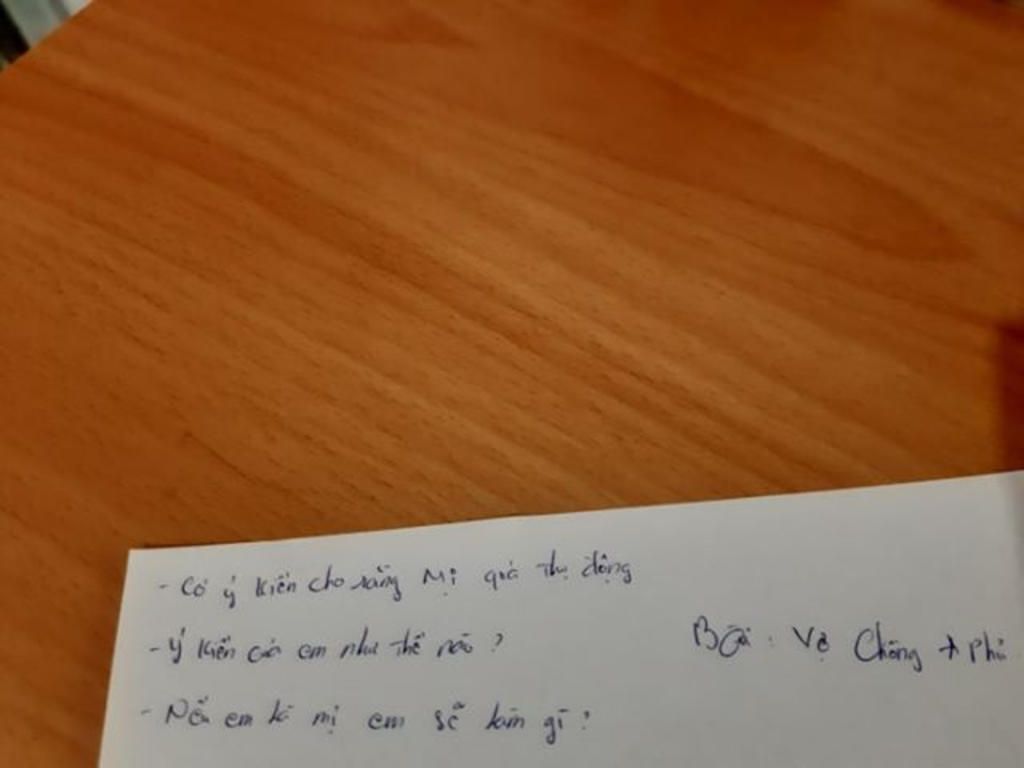 - Có ý kiến cho rằng Mị quá thụ động
- Ý kiến của em như thế nào ?
Bài : Vợ Chồng A Phủ
- Nếu em là mị em sẽ làm gì ?